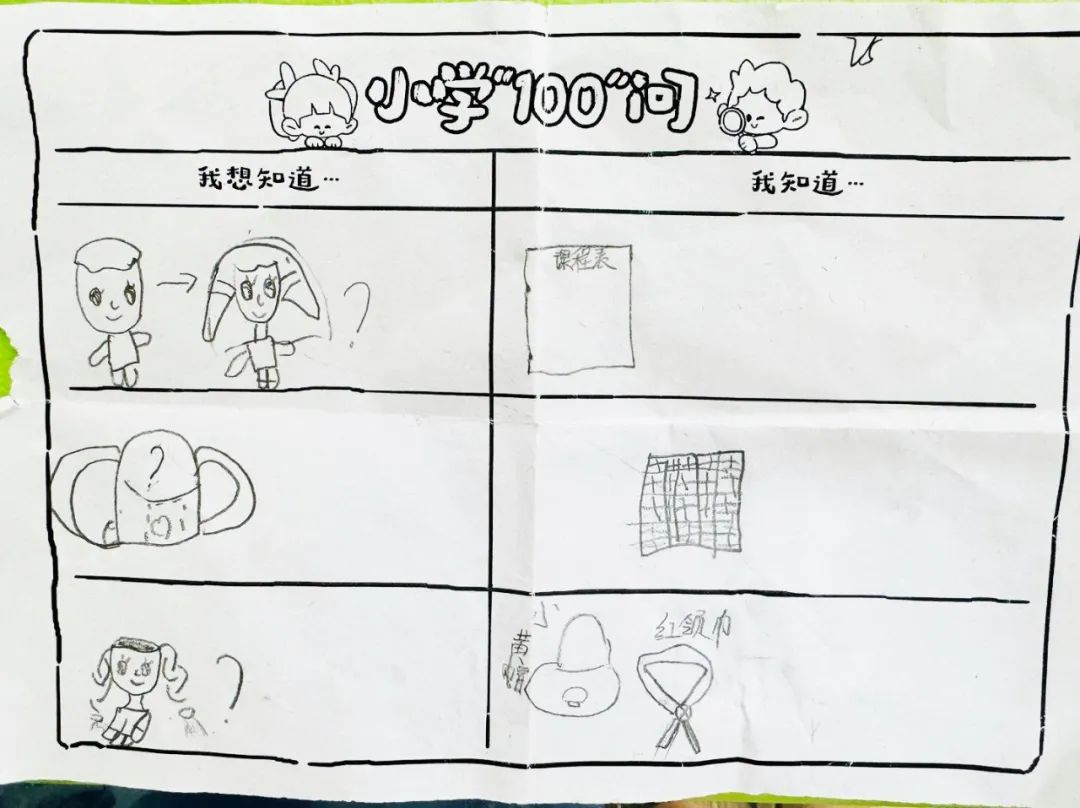 小学“100”问
我想知道…
我知道…
?
课程表
?
?
小
黄帽
红领巾